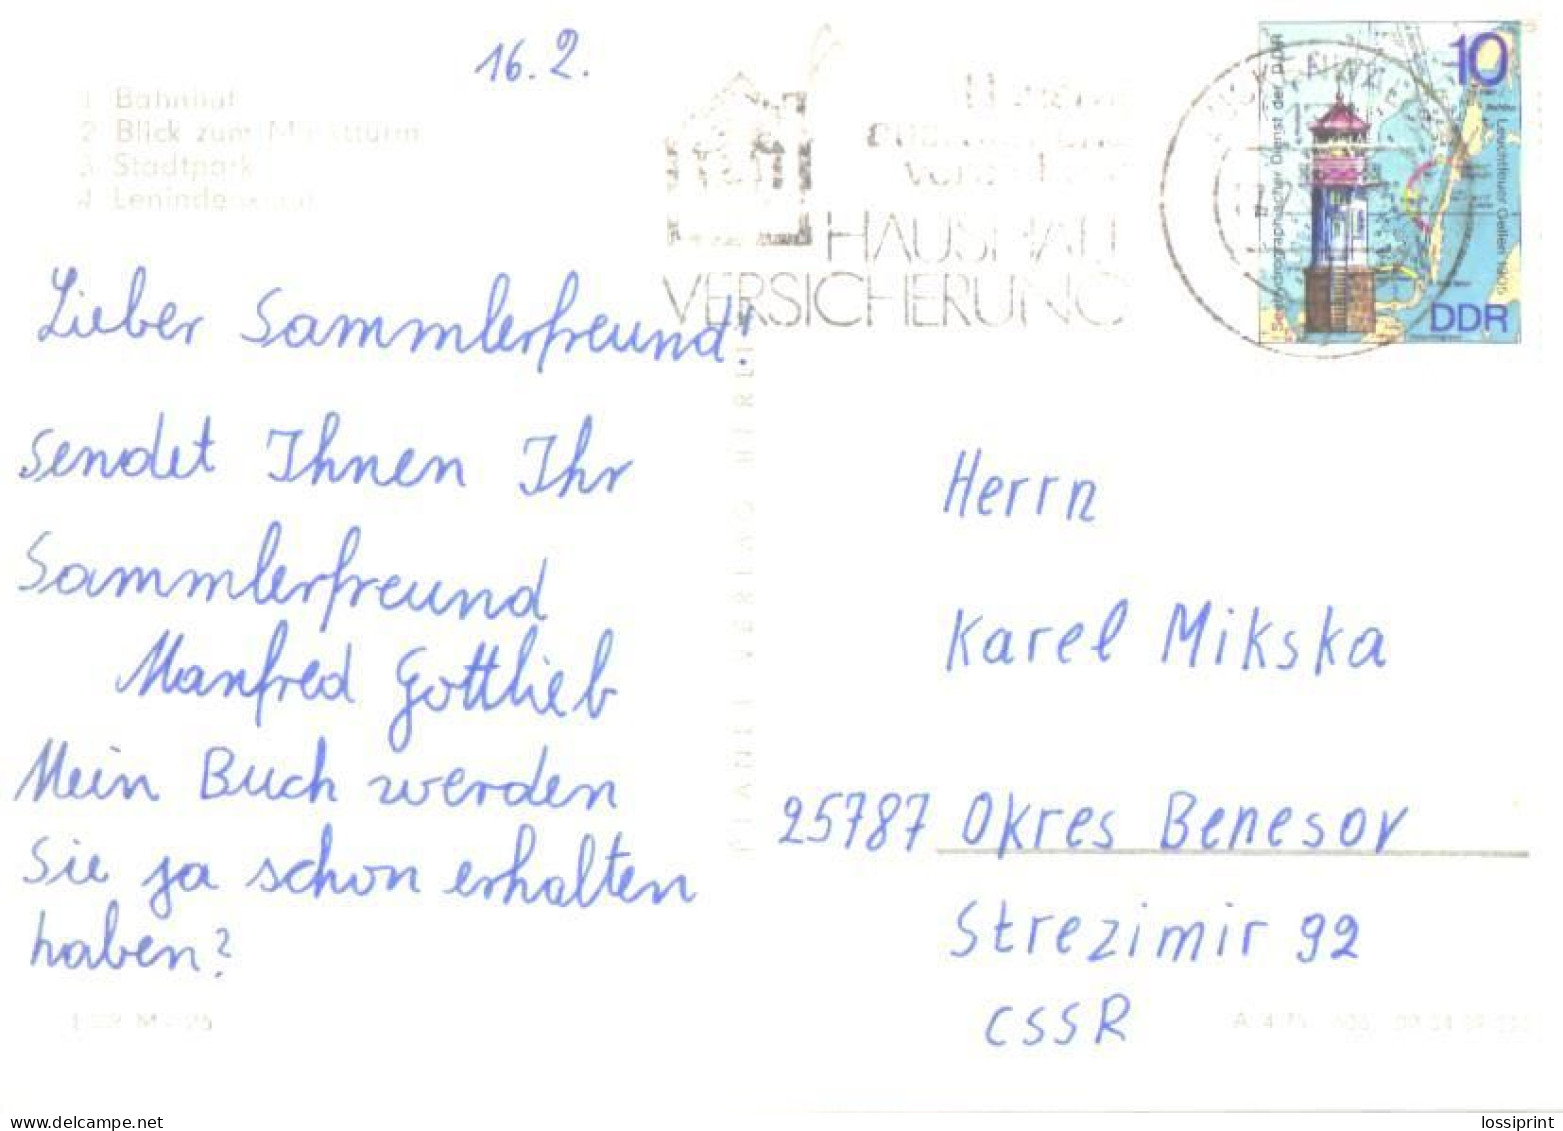 16. 2.
1 Bahnhof
2 Blick zum
3 Stadtpark
4 Lenindenkmal
HAUSHALT
VERSICHERUNG
Seehydrographischer Dienst der DDR
10
Leuchtfeuer Gellen 1905
DDR
Lieber Sammlerfreund!
sendet Ihnen Ihr
Sammlerfreund
Manfred Gottlieb
Mein Buch werden
Sie ja schon erhalten
haben?
PLANET VERLAG BERLIN
Herrn
Karel Mikska
25787 Okres Benesov
Strezimir 92
CSSR
lossiprint